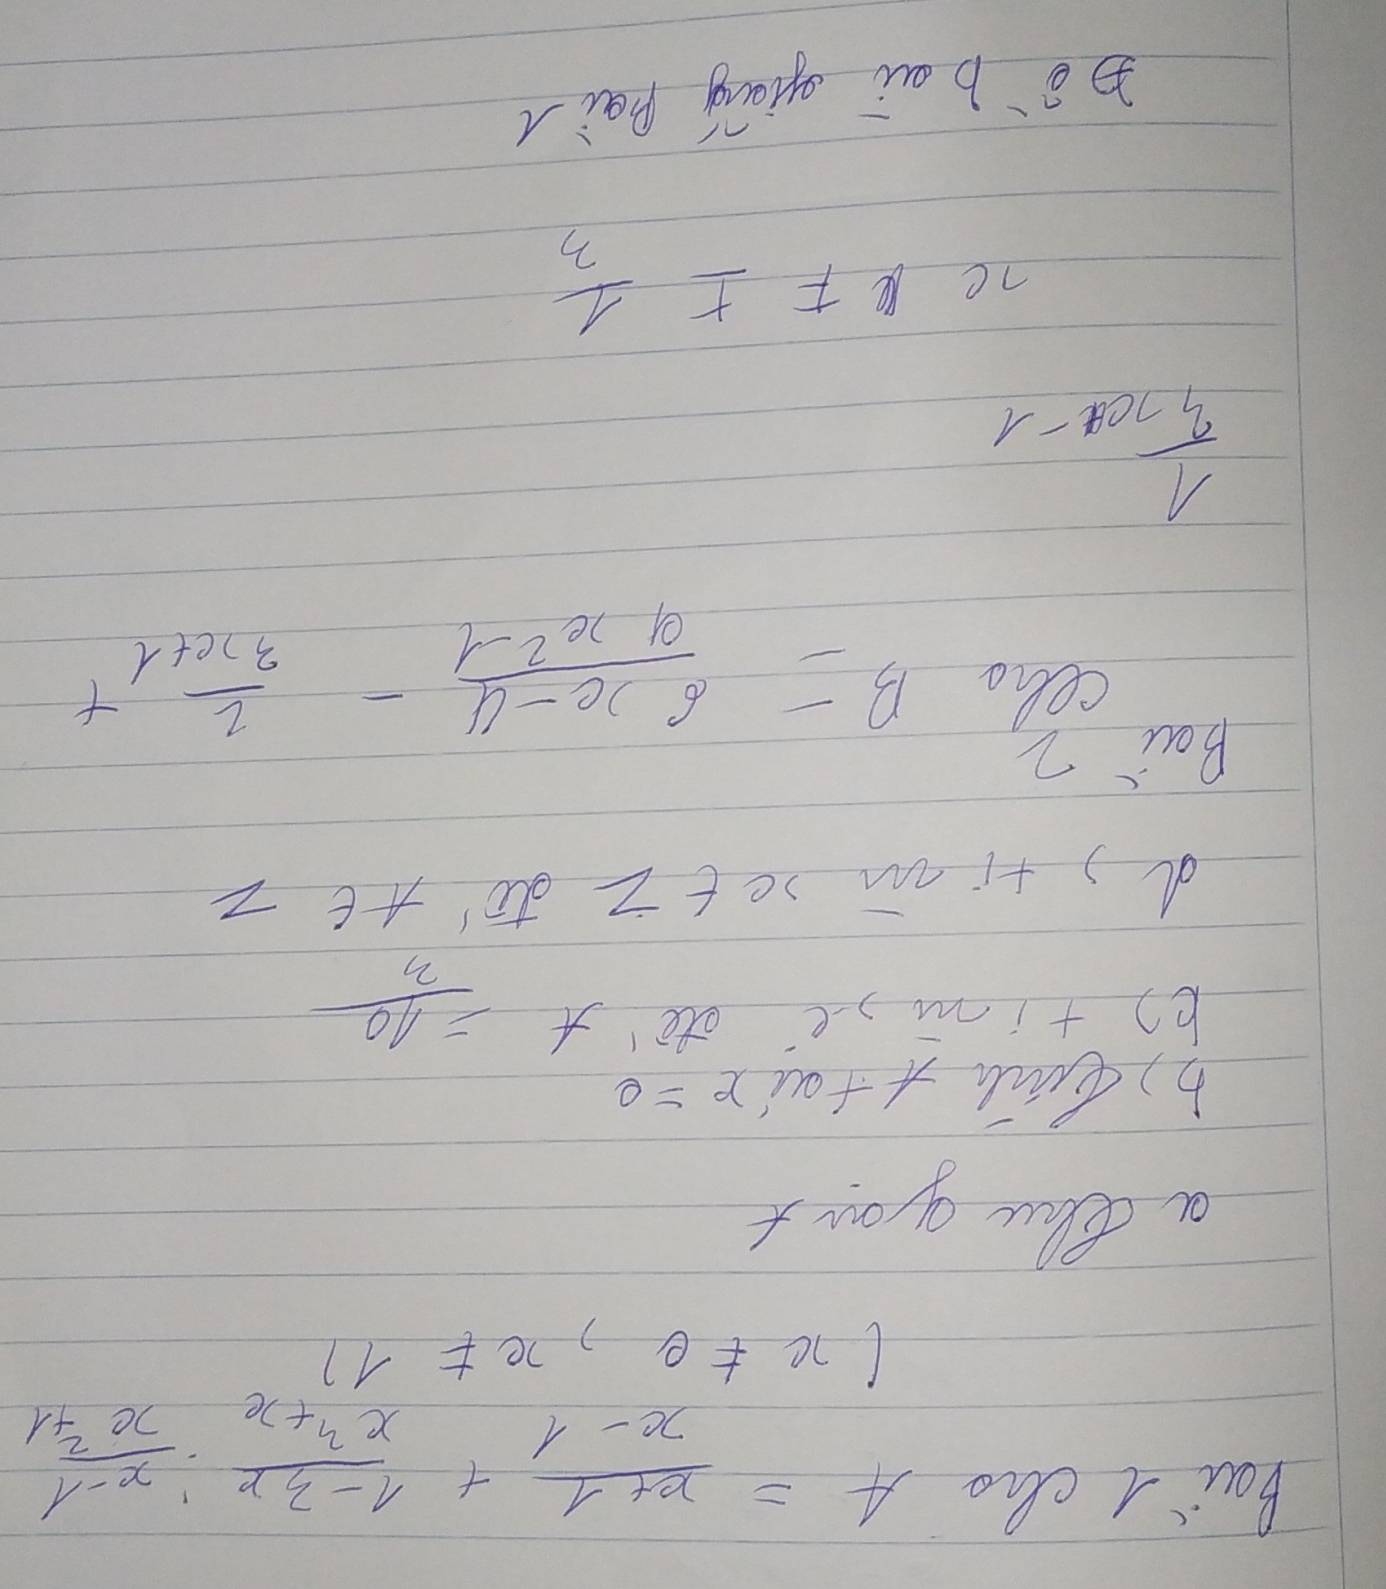 Bài 1 cho A = x+1/x-1 + 1-3x/x³+x : x-1/x²+1
(x ≠ 0, x ≠ 1)
a thu gọn A
b, tính A tại x = 0
c, tìm x để A = 10/3
d, tìm x ∈ Z để A ∈ Z
Bài 2
cho B = 6x-4/9x²-1 - 2/3x+1 +
1/3x-1
x ≠ ± 1/3
Đề bài giống bài 1